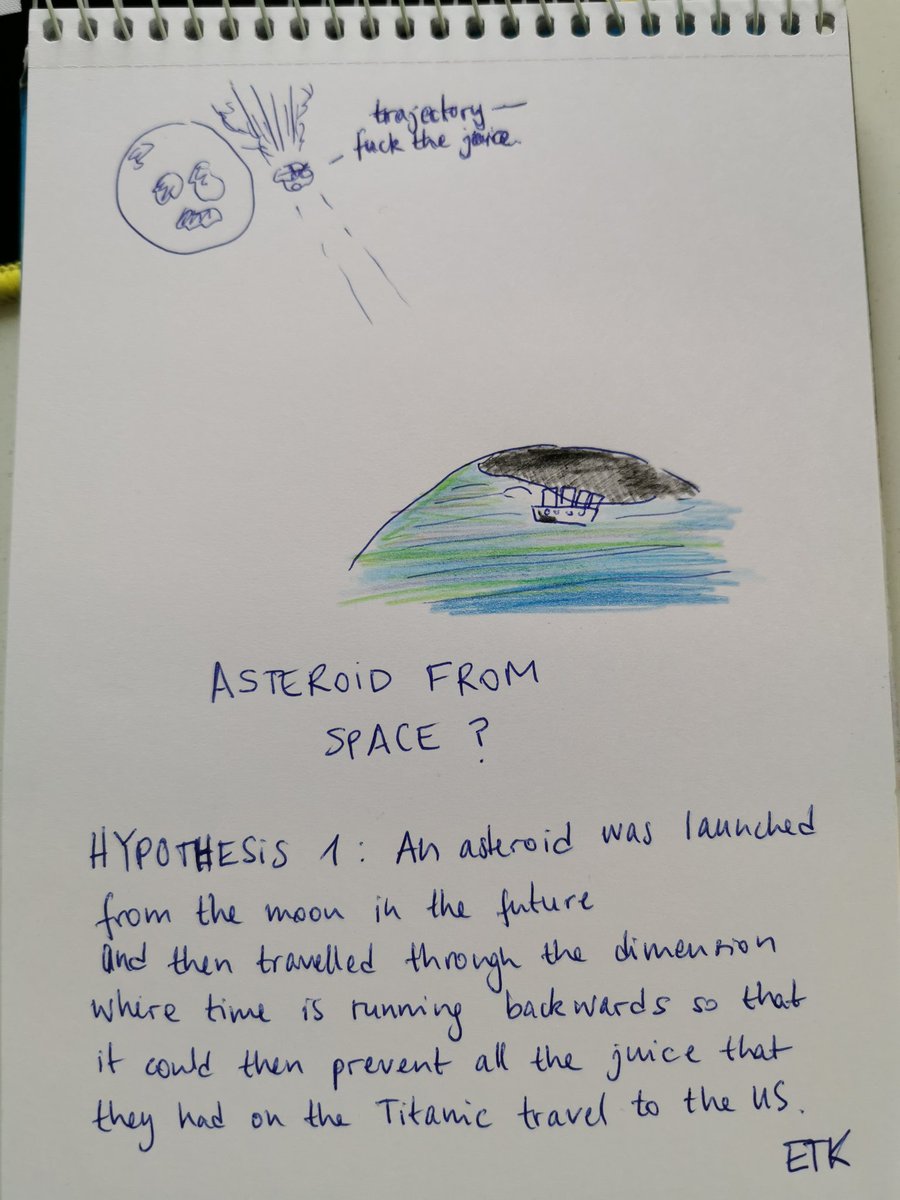 trajectory —
fuck the juice.
ASTEROID FROM
SPACE ?
HYPOTHESIS 1 : An asteroid was launched
from the moon in the future
And then travelled through the dimension
where time is running backwards so that
it could then prevent all the juice that
they had on the Titanic travel to the US.
ETK